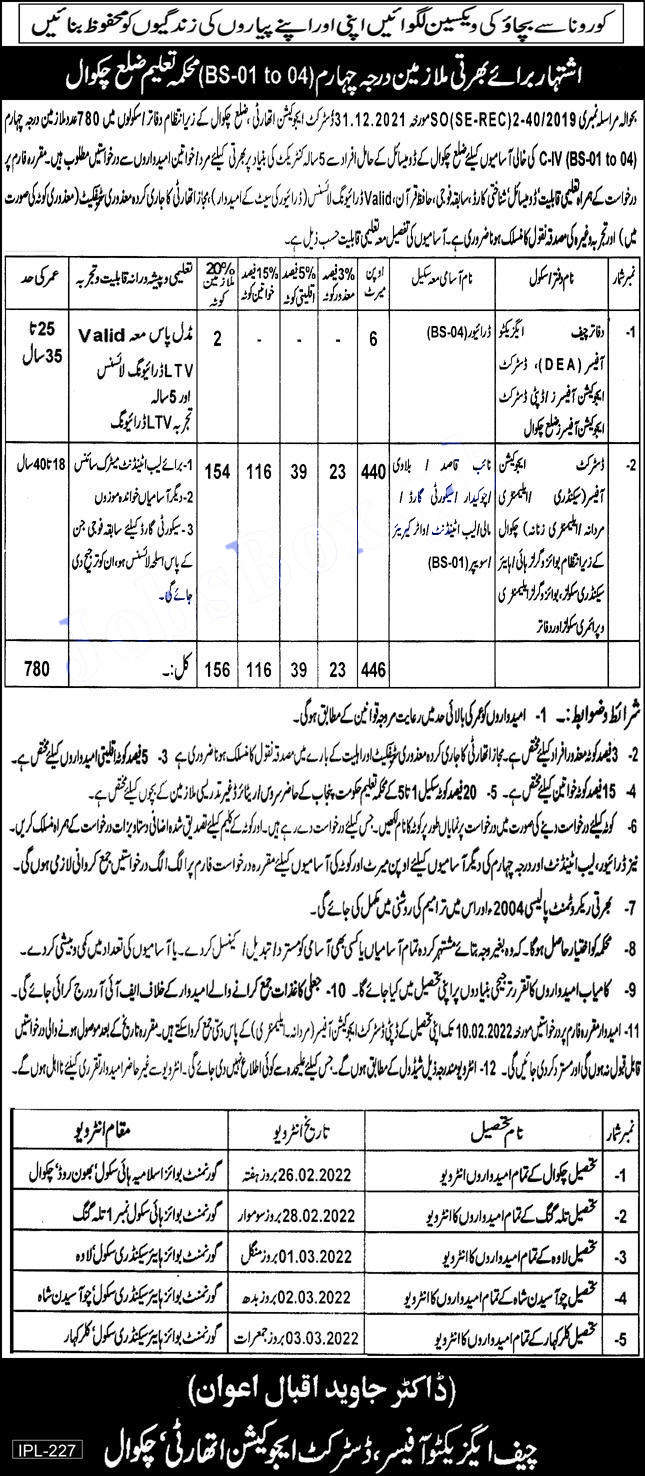 کورونا سے بچاؤ کی ویکسین لگوائیں اپنی اور اپنے پیاروں کی زندگیوں کو محفوظ بنائیں
اشتہار برائے بھرتی ملازمین درجہ چہارم (BS-01 to 04) محکمہ تعلیم ضلع چکوال
بحوالہ مراسلہ نمبری SO(SE-REC)2-40/2019 مورخہ 31.12.2021 ڈسٹرکٹ ایجوکیشن اتھارٹی، ضلع چکوال کے زیر انتظام دفاتر/سکولوں میں 780 عدد ملازمین درجہ چہارم
C-IV (BS-01 to 04) کی خالی آسامیوں کیلئے ضلع چکوال کے ڈومیسائل کے حامل افراد سے 5 سالہ کنٹریکٹ کی بنیاد پر بھرتی کیلئے مرد/خواتین امیدواروں سے درخواستیں مطلوب ہیں۔ مقررہ فارم پر
درخواست کے ہمراہ تعلیمی قابلیت، ڈومیسائل، شناختی کارڈ، سابقہ فوجی، حافظ قرآن، Valid ڈرائیونگ لائسنس (ڈرائیور کی سیٹ کے امیدوار)، مجاز اتھارٹی کا جاری کردہ معذوری سرٹیفکیٹ (معذوری کوٹہ کی صورت
میں) اور تجربہ وغیرہ کی مصدقہ نقول کا منسلک ہونا ضروری ہے۔ آسامیوں کی تفصیل معہ تعلیمی قابلیت حسب ذیل ہے۔
نمبر شمار نام دفتر/سکول نام آسامی معہ سکیل اوپن میرٹ 3% فیصد معذور کوٹہ 5% فیصد اقلیتی کوٹہ 15% فیصد خواتین کوٹہ 20% ملازمین کوٹہ تعلیمی و پیشہ ورانہ قابلیت و تجربہ عمر کی حد
1- دفاتر چیف ایگزیکٹو ڈرائیور (BS-04) 6 - - - 2 مڈل پاس معہ Valid 25 تا
آفیسر (DEA)، ڈسٹرکٹ LTV ڈرائیونگ لائسنس 35 سال
ایجوکیشن آفیسرز/ڈپٹی ڈسٹرکٹ اور 5 سالہ
ایجوکیشن آفیسرز ضلع چکوال تجربہ LTV ڈرائیونگ
2- ڈسٹرکٹ ایجوکیشن نائب قاصد/بیلاوی 440 23 39 116 154 1- برائے لیب اٹینڈنٹ میٹرک سائنس 18 تا 40 سال
آفیسر (سیکنڈری/ایلیمنٹری /چوکیدار/سیکورٹی گارڈ/ 2- دیگر آسامیاں خواندہ موزوں
مردانہ/ایلیمنٹری زنانہ) چکوال مالی/لیب اٹینڈنٹ/واٹر کیریئر 3- سیکورٹی گارڈ کیلئے سابقہ فوجی جن
کے زیر انتظام بوائز و گرلز ہائی/ہایئر /سویپر (BS-01) کے پاس اسلحہ لائسنس ہو، ان کو ترجیح دی
سیکنڈری سکولز، بوائز و گرلز ایلیمنٹری جائے گی۔
و پرائمری سکولز اور دفاتر
کل:۔ 446 23 39 116 156 780
شرائط و ضوابط:۔ 1- امیدواروں کو عمر کی بالائی حد میں رعایت مروجہ قوانین کے مطابق ہوگی۔
2- 3 فیصد کوٹہ معذور افراد کیلئے مختص ہے۔ مجاز اتھارٹی کا جاری کردہ معذوری سرٹیفکیٹ اور اہلیت کے بارے میں مصدقہ نقول کا منسلک ہونا ضروری ہے 3- 5 فیصد کوٹہ اقلیتی امیدواروں کیلئے مختص ہے۔
4- 15 فیصد کوٹہ خواتین کیلئے مختص ہے۔ 5- 20 فیصد کوٹہ سکیل 1 تا 5 کے محکمہ تعلیم حکومت پنجاب کے حاضر سروس/ریٹائرڈ غیر تدریسی ملازمین کے بچوں کیلئے مختص ہے۔
6- کوٹہ کیلئے درخواست دینے کی صورت میں درخواست پر نمایاں طور پر کوٹہ کا نام لکھیں۔ جس کیلئے درخواست دے رہے ہیں۔ اور کوٹہ کے کلیم کیلئے تصدیق شدہ اضافی دستاویزات درخواست کے ہمراہ منسلک کریں۔
نیز ڈرائیور، لیب اٹینڈنٹ اور درجہ چہارم کی دیگر آسامیوں کیلئے اوپن میرٹ اور کوٹہ کی آسامیوں کیلئے مقررہ درخواست فارم پر الگ الگ درخواستیں جمع کروانی لازمی ہوں گی۔
7- بھرتی ریکروٹمنٹ پالیسی 2004ء اور اس میں ترامیم کی روشنی میں مکمل کی جائے گی۔
8- محکمہ کو اختیار حاصل ہوگا۔ کہ وہ بغیر وجہ بتائے مشتہر کردہ تمام آسامیاں یا کسی بھی آسامی کو مسترد/تبدیل/کینسل کر دے۔ یا آسامیوں کی تعداد میں کمی و بیشی کر دے۔
9- کامیاب امیدواروں کا تقرر ترجیحی بنیادوں پر اپنی تحصیل میں کیا جائے گا۔ 10- جعلی کاغذات جمع کرانے والے امیدوار کے خلاف ایف آئی آر درج کرائی جائے گی۔
11- امیدوار مقررہ فارم پر درخواستیں مورخہ 10.02.2022 تک اپنی تحصیل کے ڈپٹی ڈسٹرکٹ ایجوکیشن آفیسر (مردانہ۔ایلیمنٹری) کے پاس دستی جمع کروا سکتے ہیں۔ مقررہ تاریخ کے بعد موصول ہونے والی درخواستیں
قابل قبول نہ ہوں گی اور مسترد کر دی جائیں گی۔ 12- انٹرویو مندرجہ ذیل شیڈول کے مطابق ہوں گے۔ جس کیلئے علیحدہ سے کوئی اطلاع نہیں دی جائے گی۔ انٹرویو سے غیر حاضر امیدوار تقرری کیلئے نااہل ہوں گے۔
نمبر شمار نام تحصیل تاریخ انٹرویو مقام انٹرویو
1- تحصیل چکوال کے تمام امیدواروں انٹرویو 26.02.2022 بروز ہفتہ گورنمنٹ بوائز اسلامیہ ہائی سکول، بھون روڈ، چکوال
2- تحصیل تلہ گنگ کے تمام امیدواروں کا انٹرویو 28.02.2022 بروز سوموار گورنمنٹ بوائز ہائی سکول نمبر 1 تلہ گنگ
3- تحصیل لاوہ کے تمام امیدواروں کا انٹرویو 01.03.2022 بروز منگل گورنمنٹ بوائز ہایئر سیکنڈری سکول، لاوہ
4- تحصیل چوآسیدن شاہ کے تمام امیدواروں کا انٹرویو 02.03.2022 بروز بدھ گورنمنٹ بوائز ہایئر سیکنڈری سکول، چوآسیدن شاہ
5- تحصیل کلر کہار کے تمام امیدواروں کا انٹرویو 03.03.2022 بروز جمعرات گورنمنٹ بوائز ہایئر سیکنڈری سکول، کلر کہار
(ڈاکٹر جاوید اقبال اعوان)
چیف ایگزیکٹو آفیسر، ڈسٹرکٹ ایجوکیشن اتھارٹی، چکوال
IPL-227